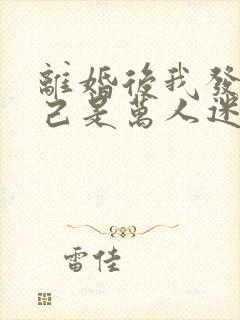 離婚後我發
己是萬人迷
雷佳